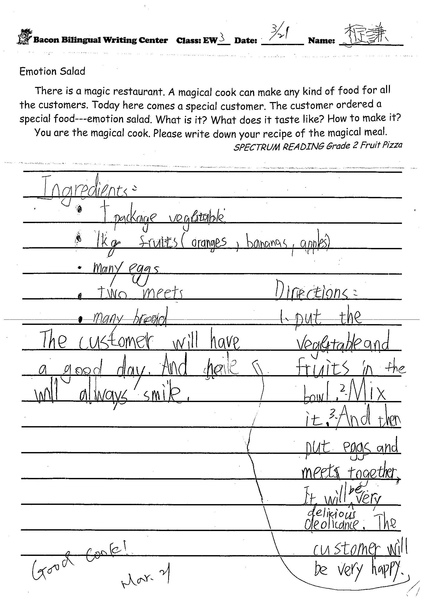 Bacon Bilingual Writing Center Class: EW 3 Date: 3/21 Name:
Emotion Salad
There is a magic restaurant. A magical cook can make any kind of food for all
the customers. Today here comes a special customer. The customer ordered a
special food---emotion salad. What is it? What does it taste like? How to make it?
You are the magical cook. Please write down your recipe of the magical meal.
SPECTRUM READING Grade 2 Fruit Pizza
Ingredients:
• 1 package vegletable
• 1kg fruits( oranges , bananas, apples)
• many eggs
• two meets
• many bread
Directions:
1. put the
vegletable and
fruits in the
bowl. 2. Mix
it. 3. And then
put eggs and
meets together.
It will be very
delicious
deolicance. The
customer will
be very happy.
The customer will have
a good day. And he
will always smile.
Good Cook!
Mar. 21